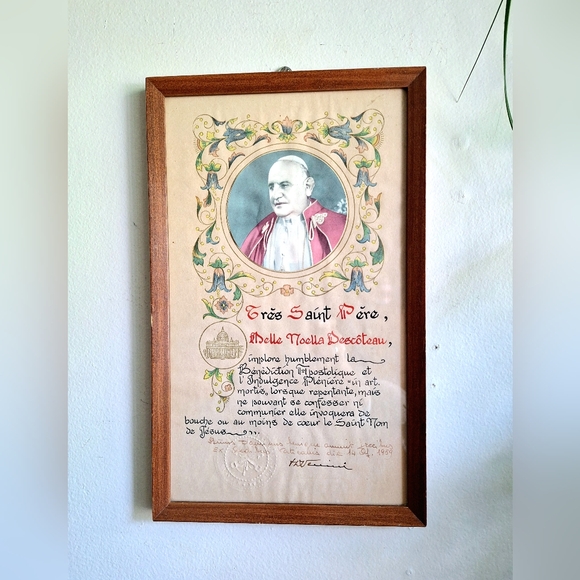 Très Saint Père,
Melle Noella Descôteau,
implore humblement la
Bénédiction Apostolique et
l'Indulgence Plénière in art.
mortis, lorsque repentante, mais
ne pouvant se confesser ni
communier elle invoquera de
bouche ou au moins de cœur le Saint Nom
de Jésus
die 14